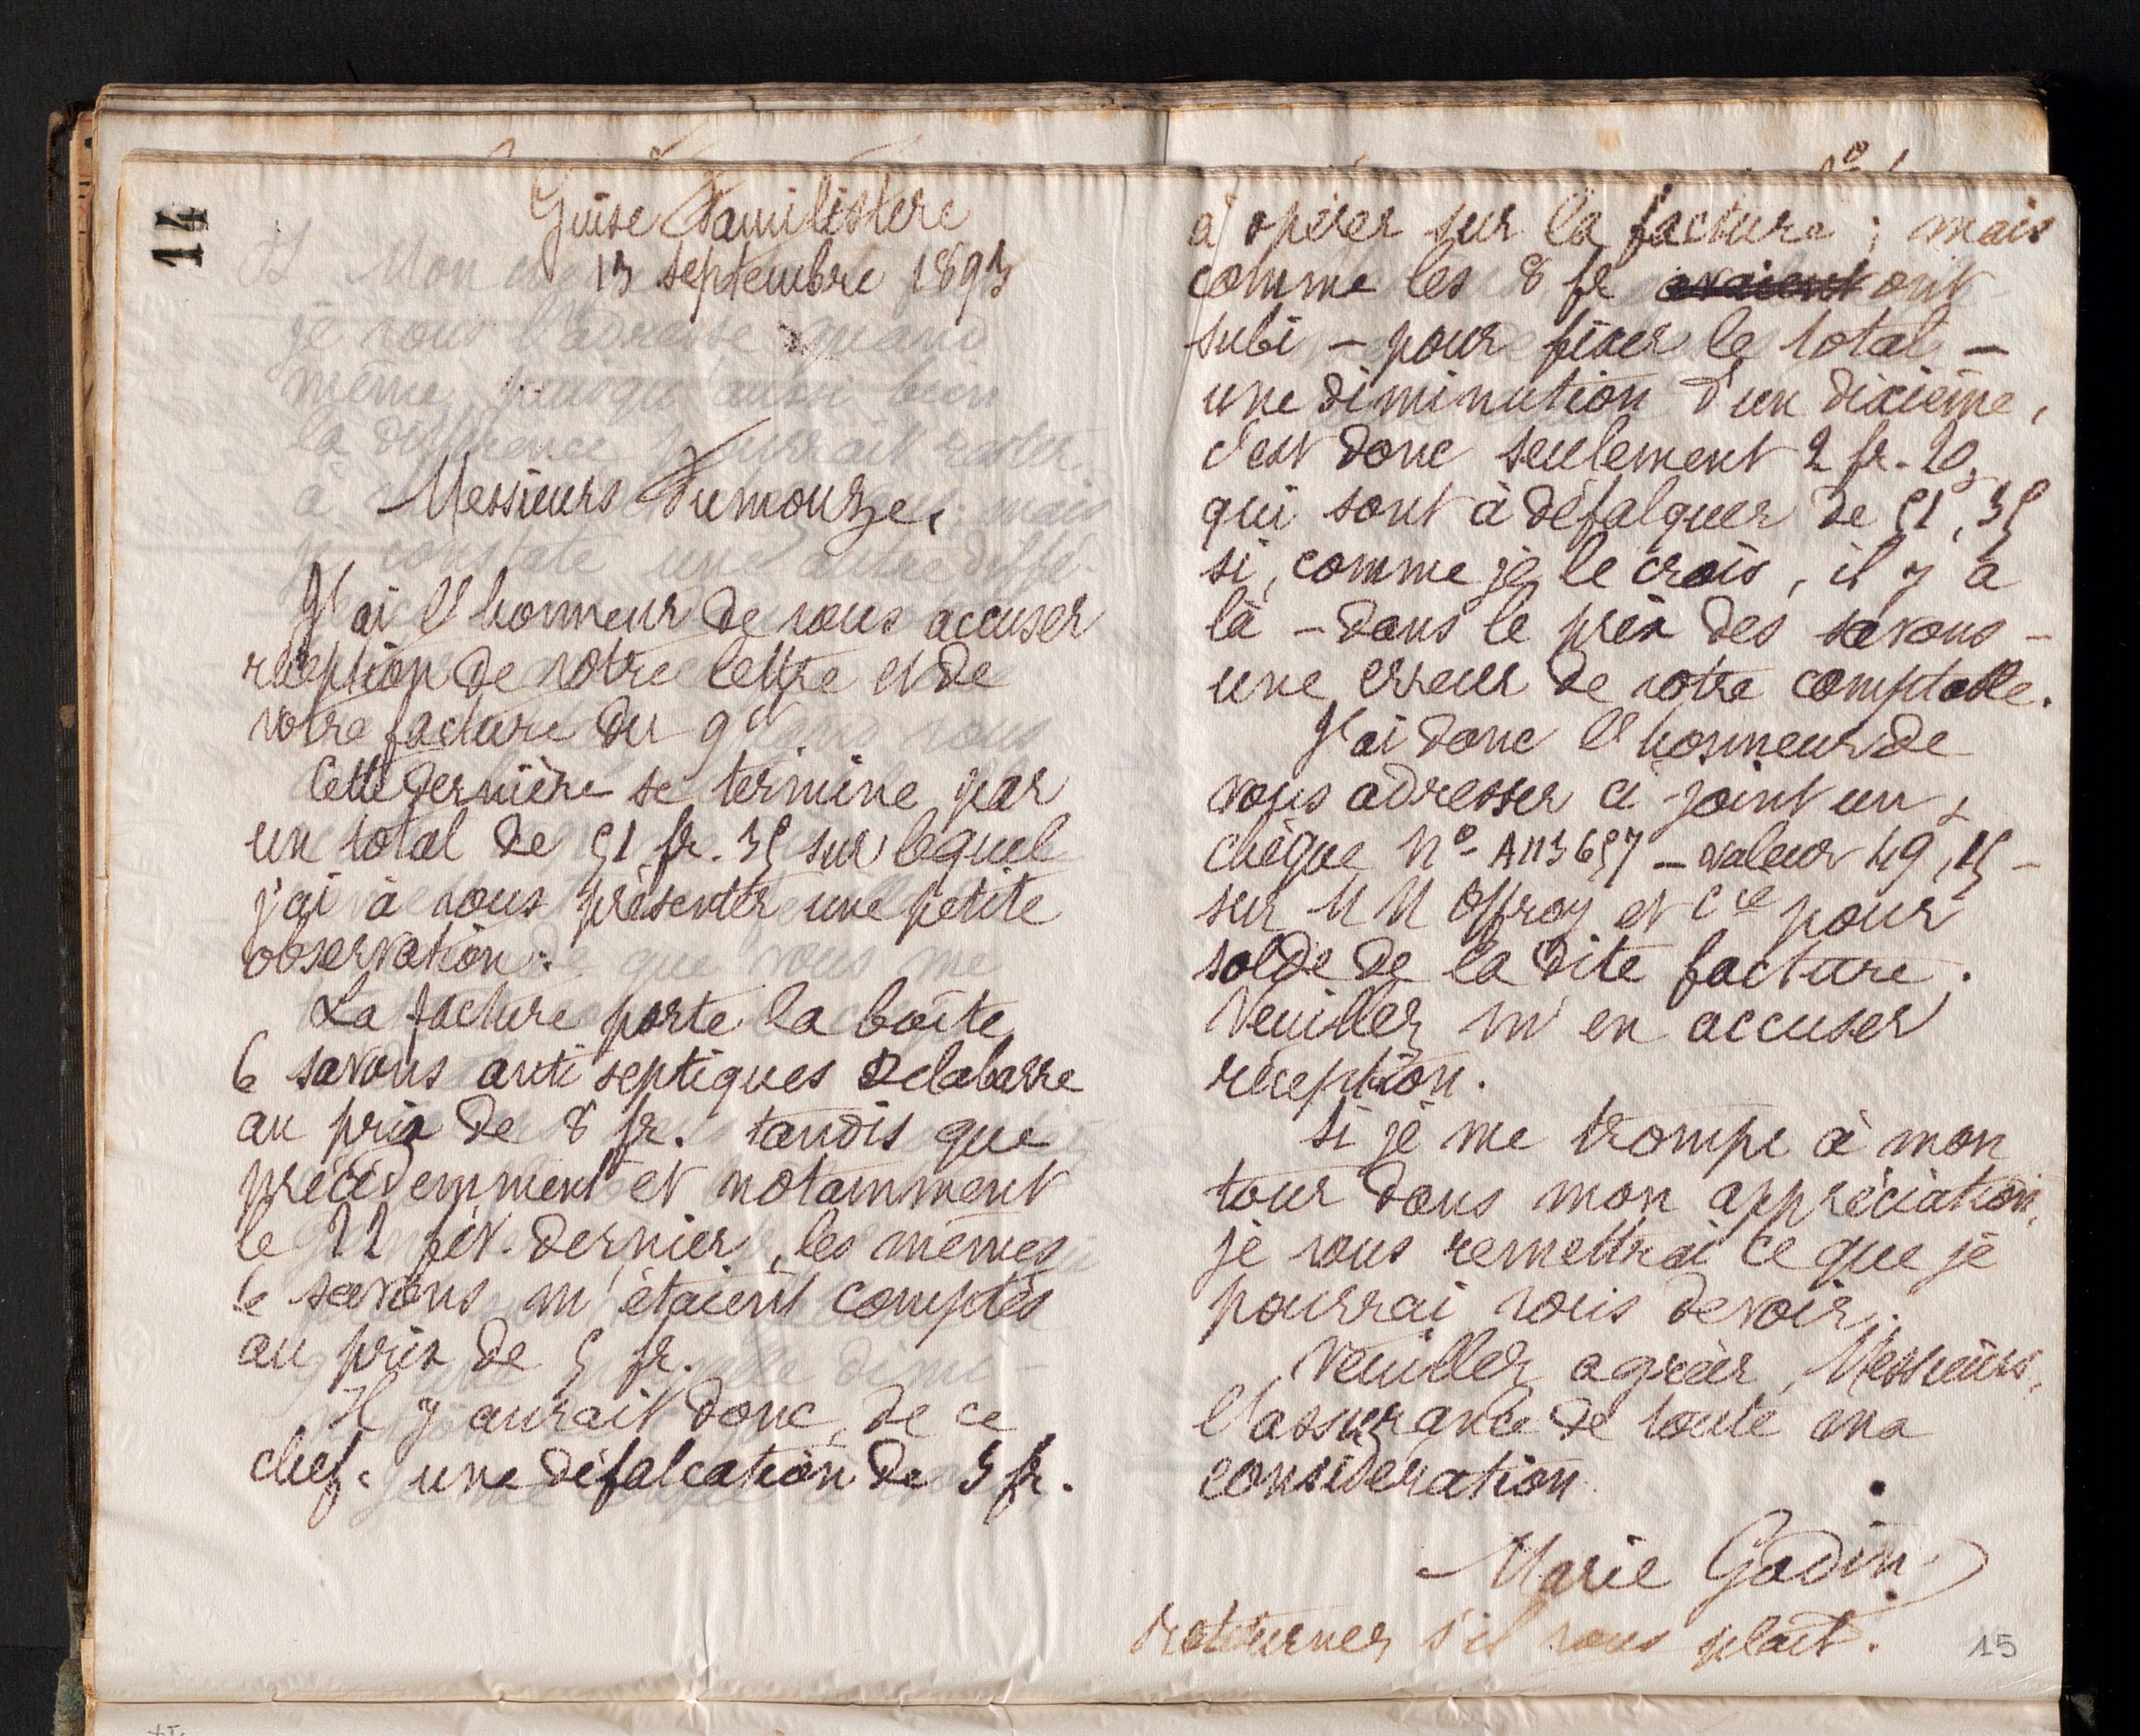 14
Guise Familistère
13 septembre 1893
Messieurs Fumouze,
J'ai l'honneur de vous accuser
réception de votre lettre et de
votre facture du 9 ct
Cette dernière se termine par
un total de 51 fr. 35 sur lequel
j'ai à vous présenter une petite
observation :
La facture porte la boîte
6 savons anti septiques Delabarre
au prix de 8 fr. tandis que
précédemment et notamment
le 22 fév. dernier, les mêmes
6 savons m'étaient comptés
au prix de 5 fr.
Il y aurait donc, de ce
chef, une défalcation de 3 fr.
à opérer sur la facture ; mais
comme les 8 fr avaient ont
subi - pour fixer le total -
une diminution d'un dixième,
c'est donc seulement 2 fr. 20
qui sont à défalquer de 51,35
si, comme je le crois, il y a
là - dans le prix des savons -
une erreur de votre comptable.
J'ai donc l'honneur de
vous adresser ci-joint un
chèque No A113657 - valeur 49,15 -
sur MM Offroy et Cie pour
solde de la dite facture.
Veuillez m'en accuser
réception.
Si je me trompe à mon
tour dans mon appréciation,
je vous remettrai ce que je
pourrai vous devoir.
Veuillez agréer, Messieurs,
l'assurance de toute ma
considération
Marie Godin
retourner s'il vous plait.
15